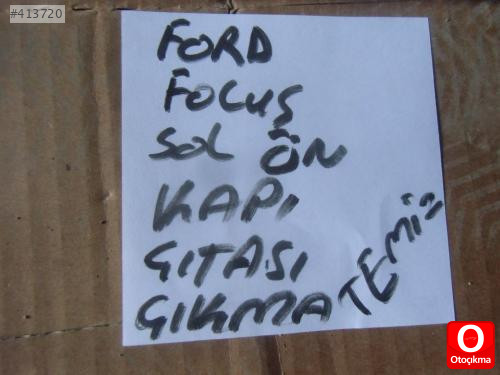 #413720
FORD
FOCUS
SOL ÖN
KAPI
ÇITASI
ÇIKMA TEMİZ
Otoçıkma